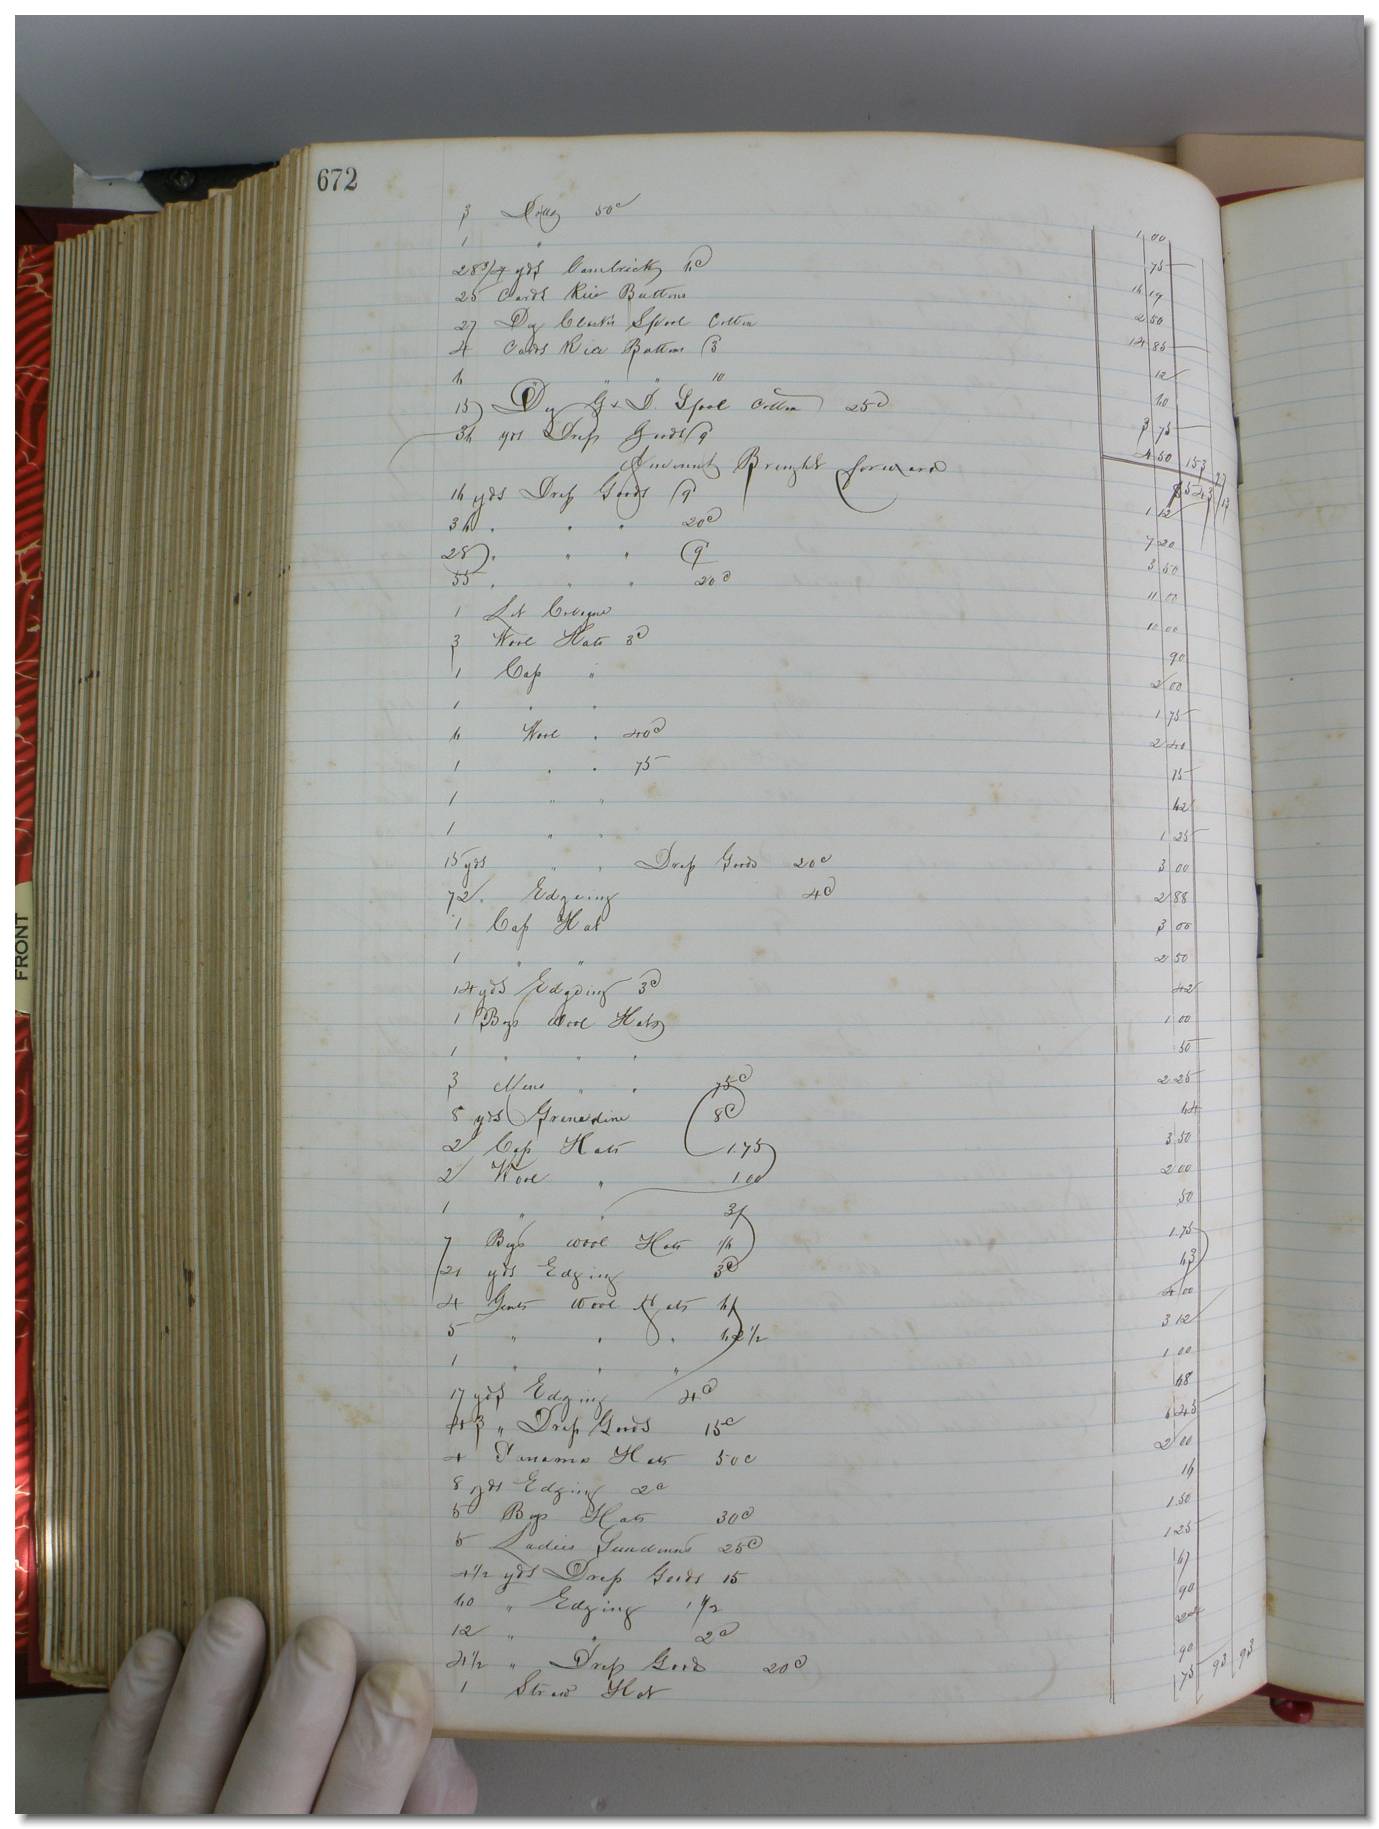 672
3 50c 1 00
1 " 75
28 3/4 yds Cambrick 6c
25 Cards Rice Buttons 2 50
27 Dz Clark's Spool Cotton 14 85
4 Cards Rice Buttons /3 12
6 " " " 10 60
15 Dz G & D. Spool Cotton 25c 3 75
36 yds Dress Goods /9 4 50 153
Amount Brought forward
16 yds Dress Goods /9 1 12
36 " " " 20c 7 20
28 " " " /9 3 50
55 " " " 20c 11 00
1 Lot Cologne 10 00
3 Wool Hats 3c 90
1 Cap " 2 00
1 " " 1 75
6 Wool " 40c 2 40
1 " " 75 75
1 " " 62
1 " " 1 25
15 yds " " Dress Goods 20c 3 00
72 " Edgeing 4c 2 88
1 Cap Hat 3 00
1 " " 2 50
14 yds Edgeing 3c 42
1 Boys Wool Hats 1 00
1 " " " 50
3 Mens " " 75c 2 25
8 yds Grenadine 8c 64
2 Cap Hats 1.75 3 50
2 Wool " 1.00 2 00
1 " " 3/ 50
7 Boys Wool Hats 1/6 1.75
21 yds Edging 3c 63
4 Gents Wool Hats 6/ 4 00
5 " " " 62 1/2 3 12
1 " " " 1 00
17 yds Edging 4c 68
43 " Dress Goods 15c 6 45
4 Panama Hats 50c 2 00
8 yds Edging 2c 16
5 Boys Hats 30c 1.50
5 Ladies 25c 1 25
4 1/2 yds Dress Goods 15 67
60 " Edging 1 1/2 90
12 " " 2c 24
4 1/2 " Dress Goods 20c 90
1 Straw Hat 75 93 93
FRONT